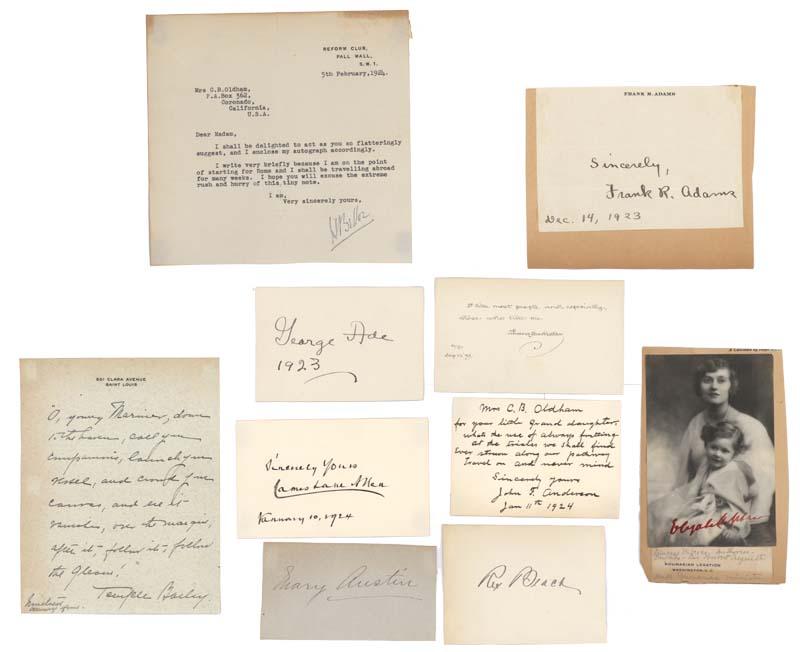 REFORM CLUB,
PALL MALL,
S.W.1.
5th February, 1924.
Mrs C.B.Oldham,
P.A.Box 362,
Coronado,
California,
U.S.A.
Dear Madam,
I shall be delighted to act as you so flatteringly
suggest, and I enclose my autograph accordingly.
I write very briefly because I am on the point
of starting for Rome and I shall be travelling abroad
for many weeks. I hope you will excuse the extreme
rush and hurry of this tiny note.
I am,
Very sincerely yours,
FRANK R. ADAMS
Sincerely,
Frank R. Adams
Dec. 14, 1923
George Ade
1923
I like most people and especially
those who like me.
501 CLARA AVENUE
SAINT LOUIS
"O, young Mariner, down
to the haven, call your
companions, launch your
vessel, and crowd your
canvas, and ere it
vanishes, over the margin,
after it, follow it, follow
the Gleam!"
Temple Bailey.
Sincerely Yours
James Lane Allen
January 10, 1924
Mrs C. B. Oldham
for your little Grand daughter,
whats the use of always fretting
at the trials we shall find
Ever strewn along our pathway
travel on and never mind
Sincerely yours
John F. Anderson
Jan 11th 1924
Mary Austin
Rex Beach
ROUMANIAN LEGATION
WASHINGTON, D.C.